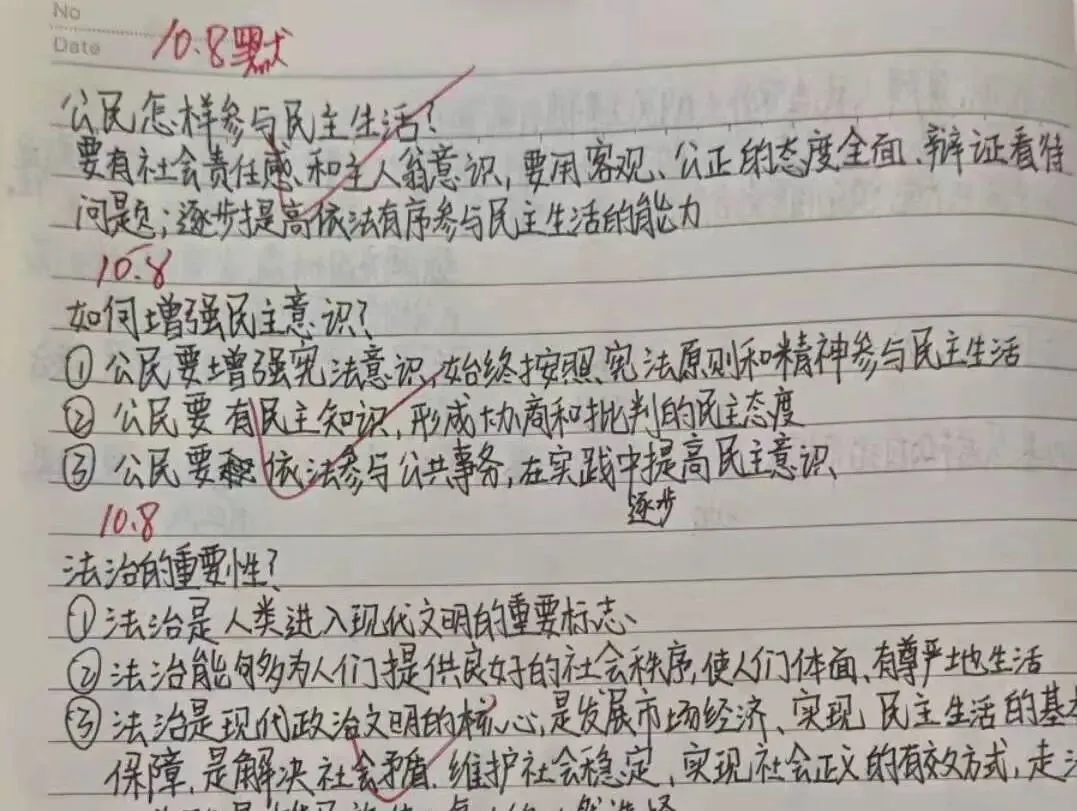 No
Date
10.8默
公民怎样参与民主生活?
要有社会责任感、和主人翁意识,要用客观、公正的态度全面、辩证看待
问题;逐步提高依法有序参与民主生活的能力
10.8
如何增强民主意识?
① 公民要增强宪法意识,始终按照宪法原则和精神参与民主生活
② 公民要有民主知识,形成协商和批判的民主态度
③ 公民要依法参与公共事务,在实践中提高民主意识
逐步
10.8
法治的重要性?
①法治是人类进入现代文明的重要标志、
②法治能够为人们提供良好的社会秩序,使人们体面、有尊严地生活
③法治是现代政治文明的核心,是发展市场经济、实现民主生活的基本
保障,是解决社会矛盾、维护社会稳定,实现社会正义的有效方式,走